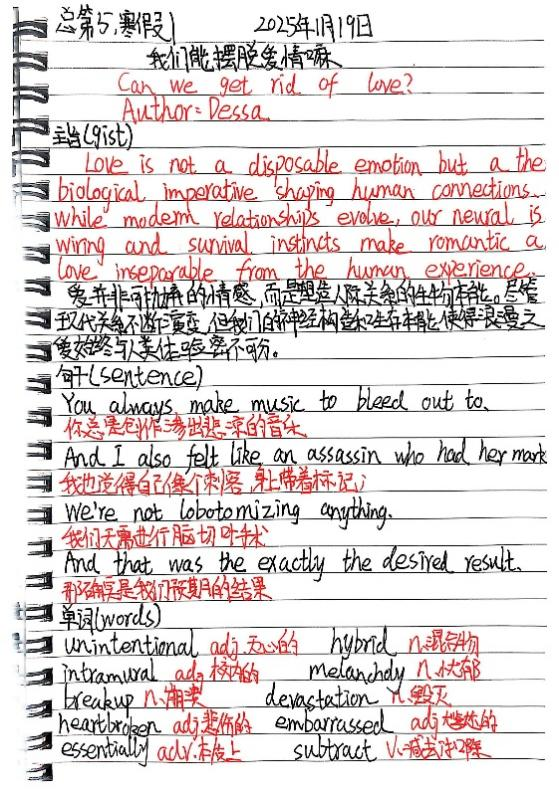 总第5,寒假1 2025年11月19日
我们能摆脱爱情嘛
Can we get rid of love?
Author=Dessa
主旨(gist)
Love is not a disposable emotion but a the
biological imperative shaping human connections.
while modern relationships evolve, our neural is
wiring and survival instincts make romantic a
love inseparable from the human experience.
爱并非可抛弃的情感,而是塑造人际关系的生物本能。尽管
现代关系不断演变,但我们的神经构造和生存本能使得浪漫之
爱始终与人类体验密不可分。
句子(sentence)
You always make music to bleed out to.
你总是创作渗出悲凉的音乐
And I also felt like an assassin who had her mark
我也觉得自己像个刺客,身上带着标记
We're not lobotomizing anything.
我们无需进行脑切叶手术
And that was the exactly the desired result.
那确实是我们预期的结果
单词(words)
unintentional adj.无心的 hybrid n.混合物
intramural adj.校内的 melancholy n.忧郁
breakup n.崩溃 devastation n.毁灭
heartbroken adj.悲伤的 embarrassed adj.尴尬的
essentially adv.本质上 subtract v.减去;扣除